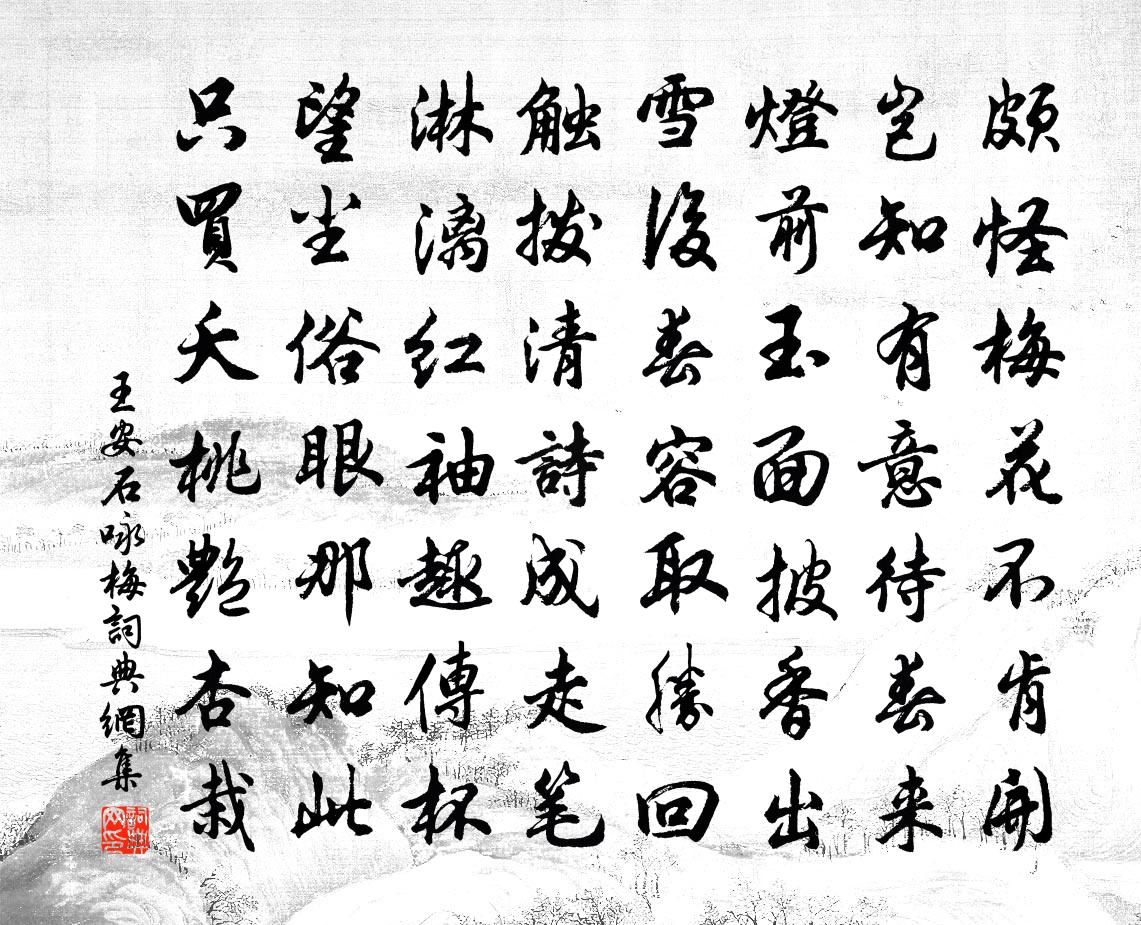 頗怪梅花不肯開
豈知有意待春来
燈前玉面披香出
雪後春容取勝回
触撥清詩成走笔
淋漓红袖趣傳杯
望尘俗眼那知此
只買夭桃艷杏栽
王安石咏梅詞典網集